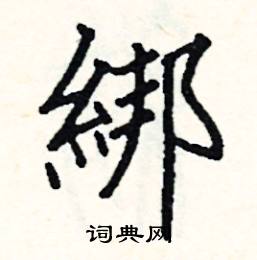 綁
词典网